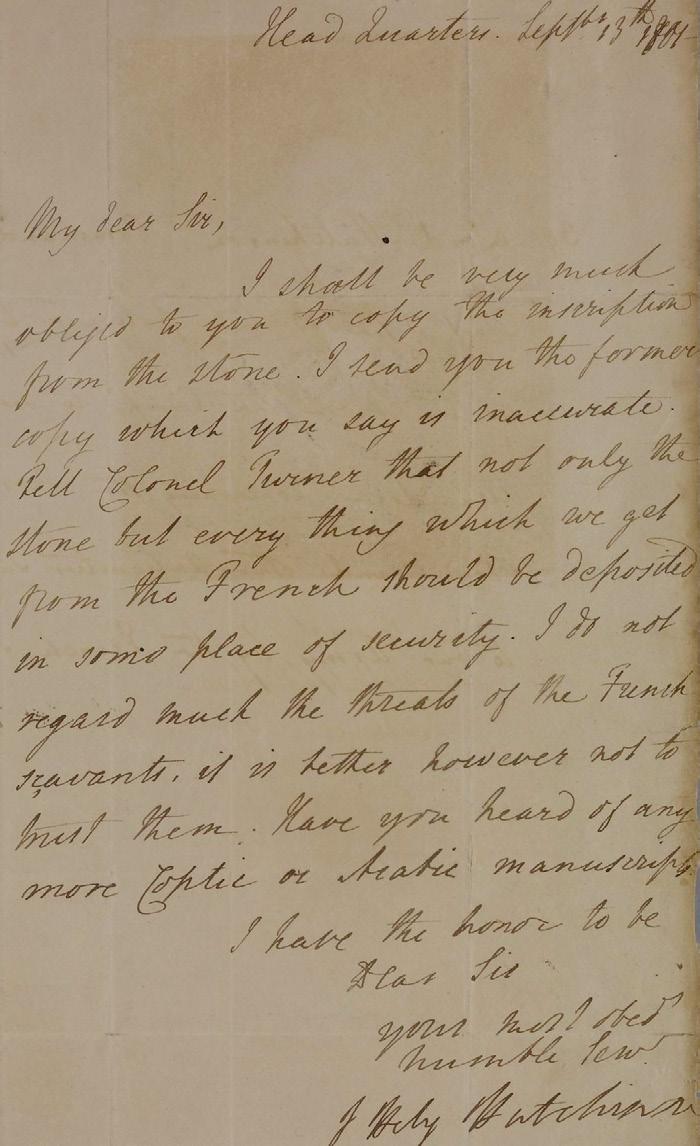 Head Quarters. Septbr 13th 1801
My dear Sir,
I shall be very much
obliged to you to copy the inscription
from the stone. I send you the former
copy which you say is inaccurate.
Tell Colonel Turner that not only the
stone but every thing which we get
from the French should be deposited
in some place of security. I do not
regard much the threats of the French
scavants, it is better however not to
trust them. Have you heard of any
more Coptic or Arabic manuscripts
I have the honor to be
Dear Sir
your most obedt
humble Servt
J Hely Hutchinson